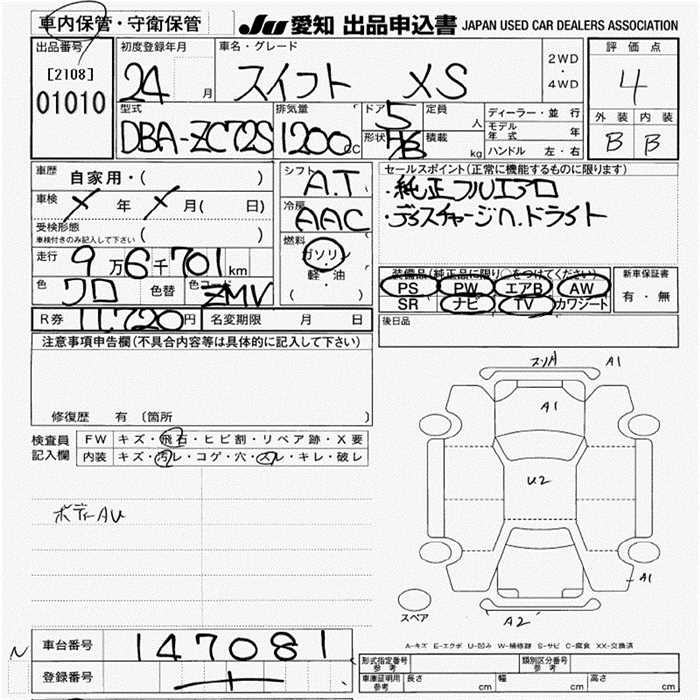 車内保管・守衛保管
JU 愛知 出品申込書 JAPAN USED CAR DEALERS ASSOCIATION
出品番号
[2108]
01010
初度登録年月
24 月
車名・グレード
スイフト XS
2WD
・
4WD
評価点
4
外装 内装
B B
型式
DBA-ZC72S
排気量
1200cc
ドア 5
形状 HB
定員 人
積載 kg
ディーラー・並行
モデル年式 年
ハンドル 左・右
車歴 自家用・( )
車検 年 月( 日)
受検形態
車検付きのみ記入して下さい ( )
走行 9万6千701km
色 クロ 色替 色コード ZMV
シフト
A.T
冷房
AAC
燃料
ガソリン
軽・油
( )
セールスポイント(正常に機能するものに限ります)
・純正フルエアロ
・ディスチャージヘッドライト
装備品(純正品に限り○をつけてください)
PS PW エアB AW
SR ナビ TV カワシート
新車保証書
有・無
後日品
R券 11,720円 名変期限 月 日
注意事項申告欄(不具合内容等は具体的に記入して下さい)
修復歴 有 〔箇所 〕
検査員
記入欄
FW キズ・飛石・ヒビ割・リペア跡・X要
内装 キズ・汚レ・コゲ・穴・スレ・キレ・破レ
ボディーAU
スリA A1
A1
U2
A1
A2
スペア
A-キズ E-エクボ U-凹み W-補修跡 S-サビ C-腐食 XX-交換済
N 車台番号 147081
登録番号
形式指定番号 参考
類別区分番号 参考
車庫証明用 参考 長さ cm 幅 cm 高さ cm